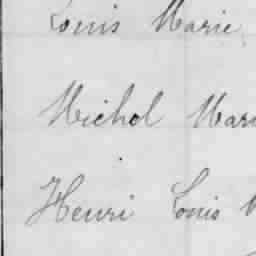 Louis Marie
Michol Mari
Henri Louis